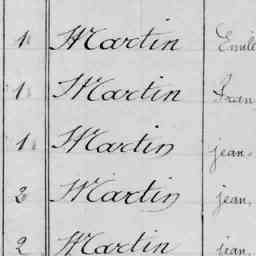 1 Martin Emile
1 Martin Fran
1 Martin jean
2 Martin jean
2 Martin jean